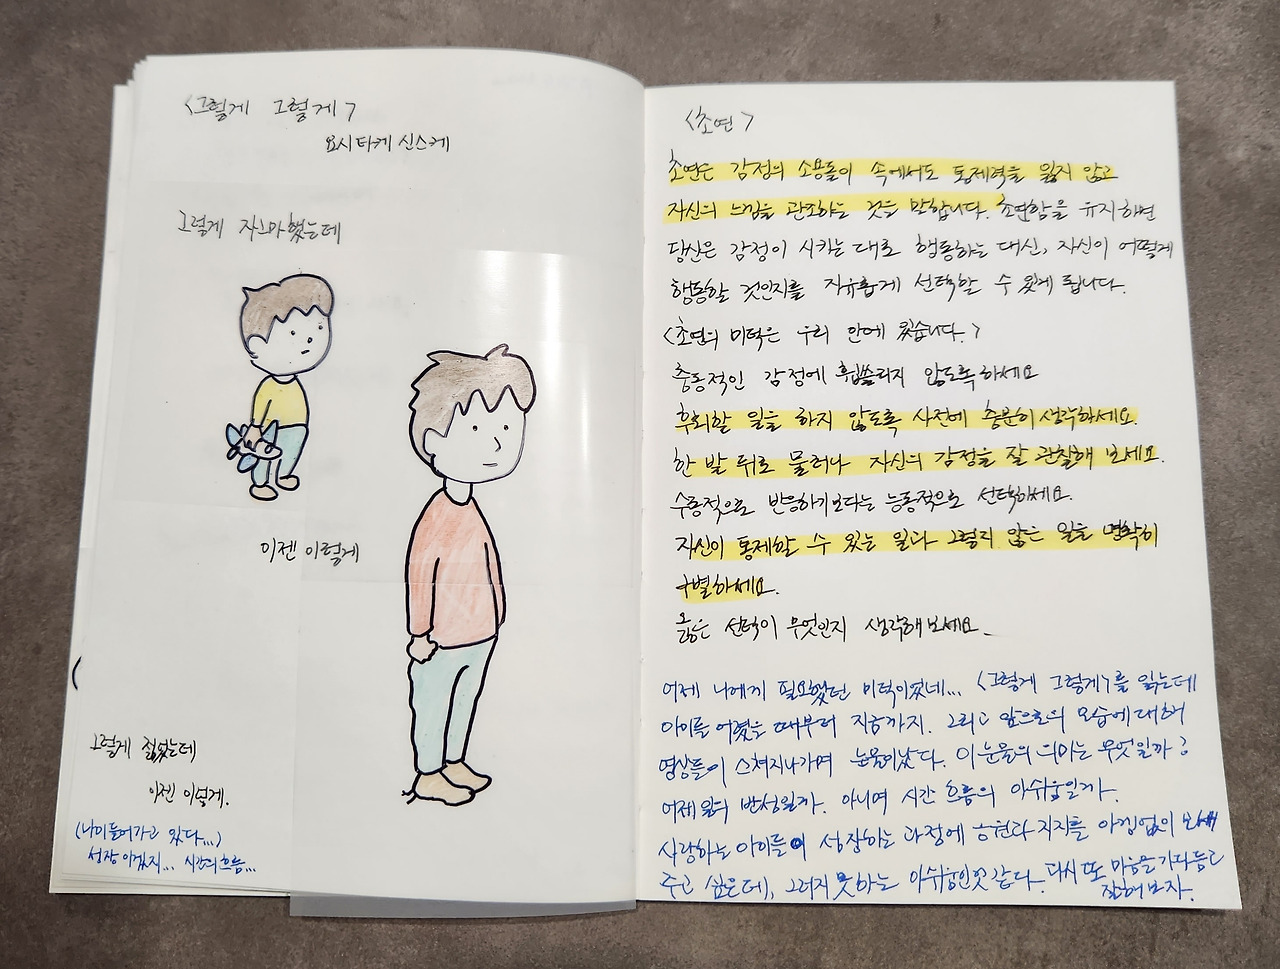 <그렇게 그렇게>
요시타케 신스케
그렇게 자그마했는데
이젠 이렇게
그렇게 젊었는데
이젠 이렇게.
(나이들어가고 있다...)
성장이겠지... 시간의 흐름...
<초연>
초연은 감정의 소용돌이 속에서도 통제력을 잃지 않고
자신의 느낌을 관조하는 것을 말합니다. 초연함을 유지하면
당신은 감정이 시키는 대로 행동하는 대신, 자신이 어떻게
행동할 것인지를 자유롭게 선택할 수 있게 됩니다.
<초연의 미덕은 우리 안에 있습니다.>
충동적인 감정에 휩쓸리지 않도록하세요
후회할 일을 하지 않도록 사전에 충분히 생각하세요.
한 발 뒤로 물러나 자신의 감정을 잘 관찰해 보세요.
수동적으로 반응하기보다는 능동적으로 선택하세요.
자신이 통제할 수 있는 일과 그렇지 않은 일을 명확히
구별하세요.
옳은 선택이 무엇인지 생각해보세요.
어제 나에게 필요했던 미덕이었네... <그렇게 그렇게>를 읽는데
아이들 어렸을 때부터 지금까지. 그리고 앞으로의 모습에 대해
영상들이 스쳐지나가며 눈물이났다. 이 눈물의 의미는 무엇일까?
어제 일의 반성일까. 아니면 시간 흐름의 아쉬움일까.
사랑하는 아이들이 성장하는 과정에 응원과 지지를 아낌없이 보내
주고 싶은데, 그러지 못하는 아쉬움인것 같다. 다시 또 마음을 가다듬고
잘해보자.